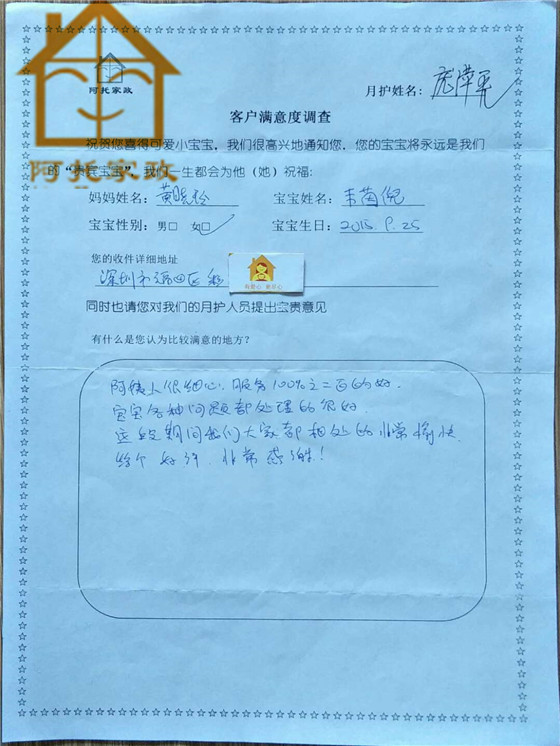 阿托家政
阿托家政
月护姓名：
客户满意度调查
祝贺您喜得可爱小宝宝，我们很高兴地通知您，您的宝宝将永远是我们
的“贵宾宝宝”，我们一生都会为他（她）祝福：
妈妈姓名：黄晓玲 宝宝姓名：
宝宝性别：男□ 女□ 宝宝生日：2015.9.25
您的收件详细地址
深圳市福田区
有爱心 更舒心
同时也请您对我们的月护人员提出宝贵意见
有什么是您认为比较满意的地方？
阿姨人很细心，服务100%之二百的好，
宝宝各种问题都处理的很好，
这段期间我们大家都相处的非常愉快，
给个好评，非常感谢！